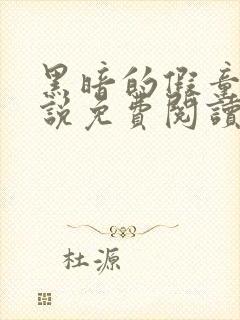 黑暗的假童
說免費閱讀
杜源